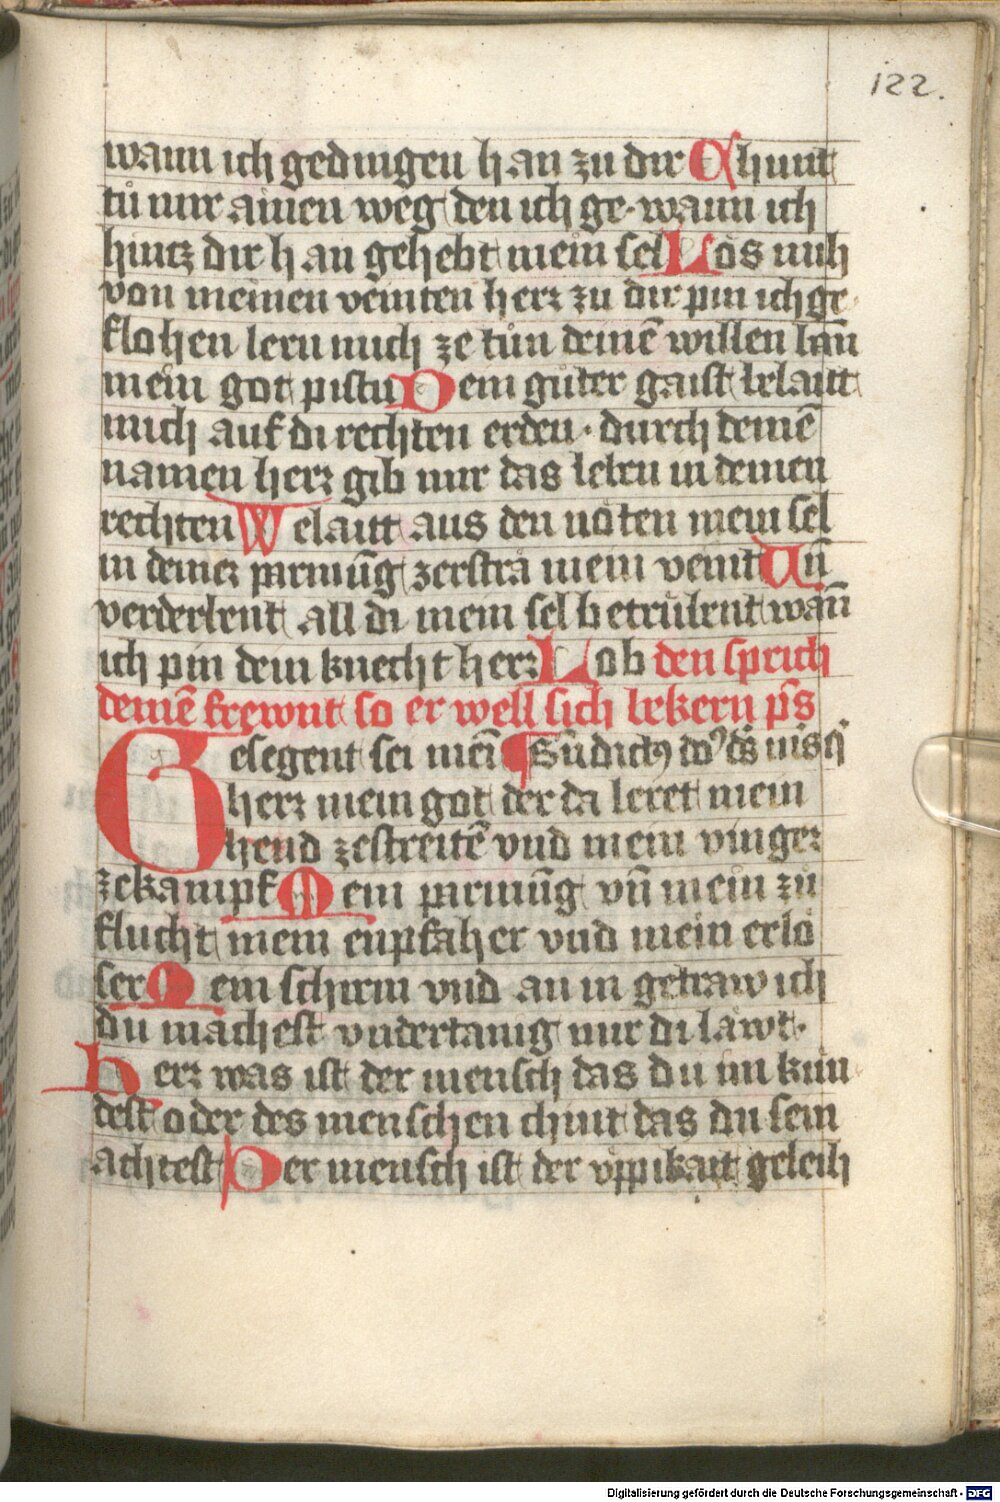 122.
wann ich gedingen han zu dir Chunt
tů mir ainen weg den ich ge· wann ich
hintz dir han gehebt mein sel Lös mich
von meinen veinten herr zu dir pin ich ge
flohen lern mich ze tůn deinē willen wan̄
mein got pistu Dein gůter gaist belaitt
mich auf di rechten erden· durch deinē
namen herr gib mir das leben in deinen
rechten Welaitt aus den nöten mein sel
in deiner parmūg zerströ mein veint Un̄
verderbent all di mein sel betrůbent wan̄
ich pin dein knecht herr Lob den sprich
deinē frewnt so er well sich bekern ps
Gesegent sei mein Bn̄dictꝰ do᷒ ds mſ q
herr mein got der da leret mein
hend zestreitē vnd mein vinger
zekampf Mein parmūg vn̄ mein zu
flucht mein enpfaher vnd mein erlö
ser Mein schirm vnd an in getraw ich
du machest vndertanig mir di läwt·
Herr was ist der mensch das du im kün
dest oder des menschen chint das du sein
achtest Der mensch ist der vppikait geleich
Digitalisierung gefördert durch die Deutsche Forschungsgemeinschaft - DFG